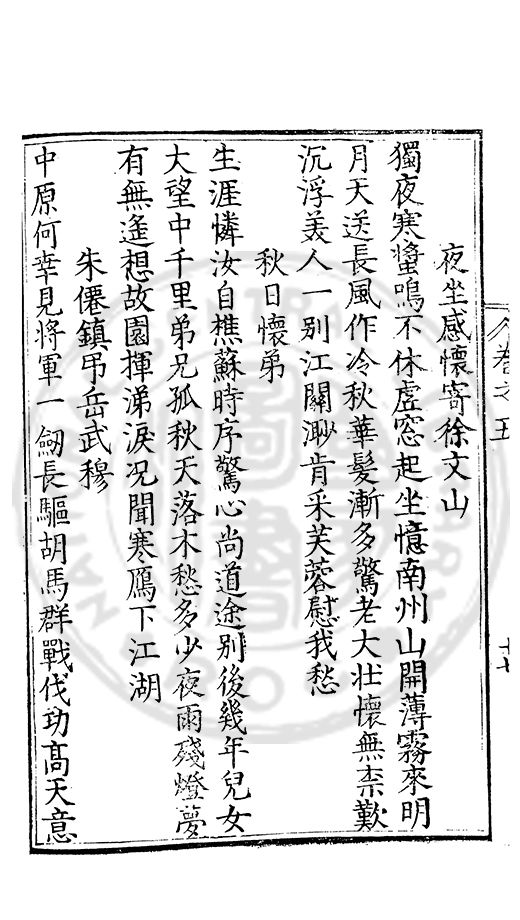 卷之五
十七
夜坐感懷寄徐文山
獨夜寒螿鳴不休虛窓起坐憶南州山開薄霧來明
月天送長風作冷秋華髮漸多驚老大壯懷無柰歎
沉浮美人一別江關渺肯采芙蓉慰我愁
秋日懷弟
生涯憐汝自樵蘇時序驚心尚道途別後幾年兒女
大望中千里弟兄孤秋天落木愁多少夜雨殘燈夢
有無遙想故園揮涕淚况聞寒鴈下江湖
朱僊鎮弔岳武穆
中原何幸見將軍一劒長驅胡馬群戰伐功高天意